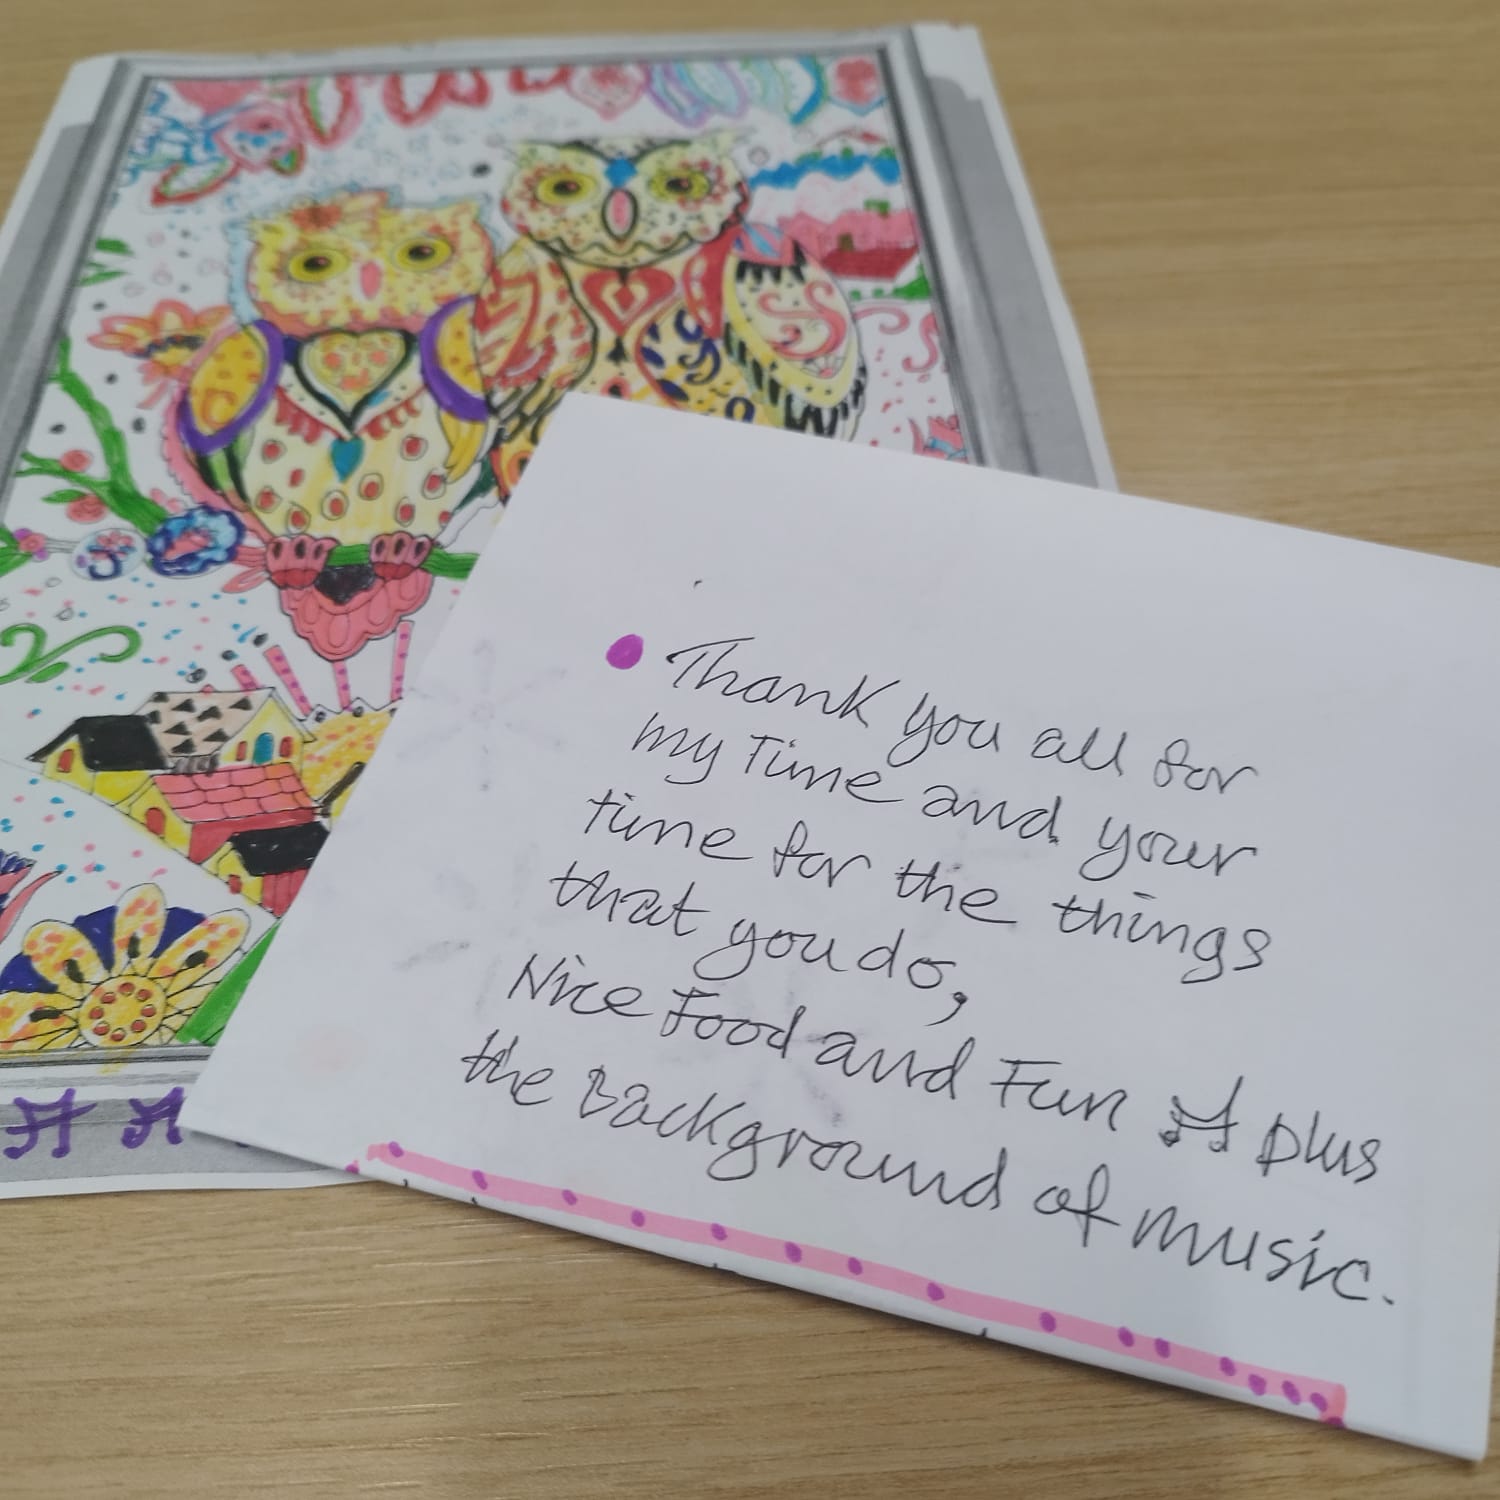 Thank you all for
my Time and your
time for the things
that you do,
Nice Food and Fun plus
the Background of music.